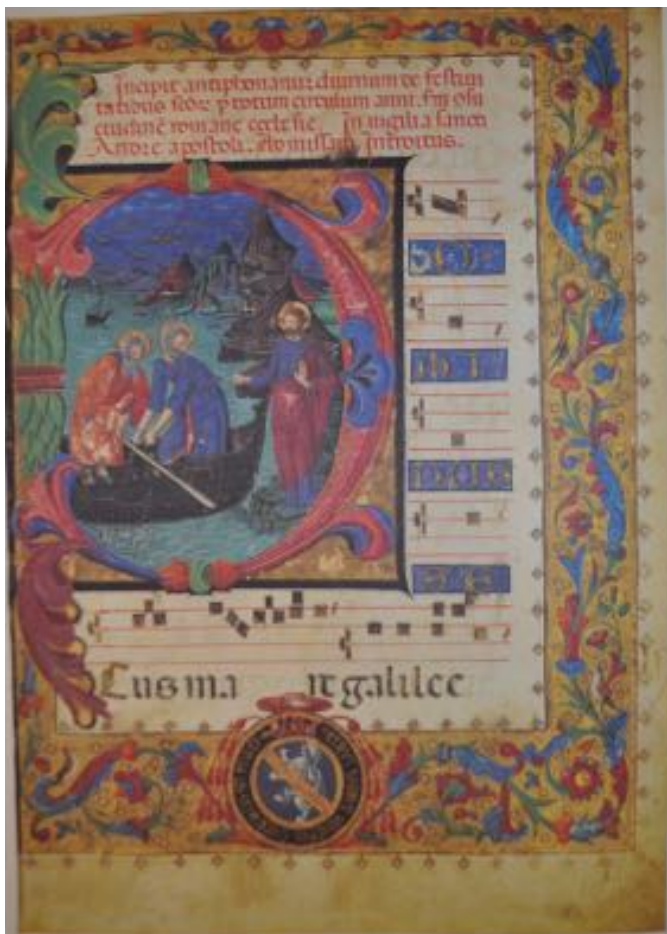 Incipit antiphonariuz diurnum de festiui
tatibus scōr p totum circulum anni. Fm
etudinē romane ecclesie In uigilia sancti
Andree apostoli. Ad missam Introitus.
M I
NUS
SE
Cus ma re galilee